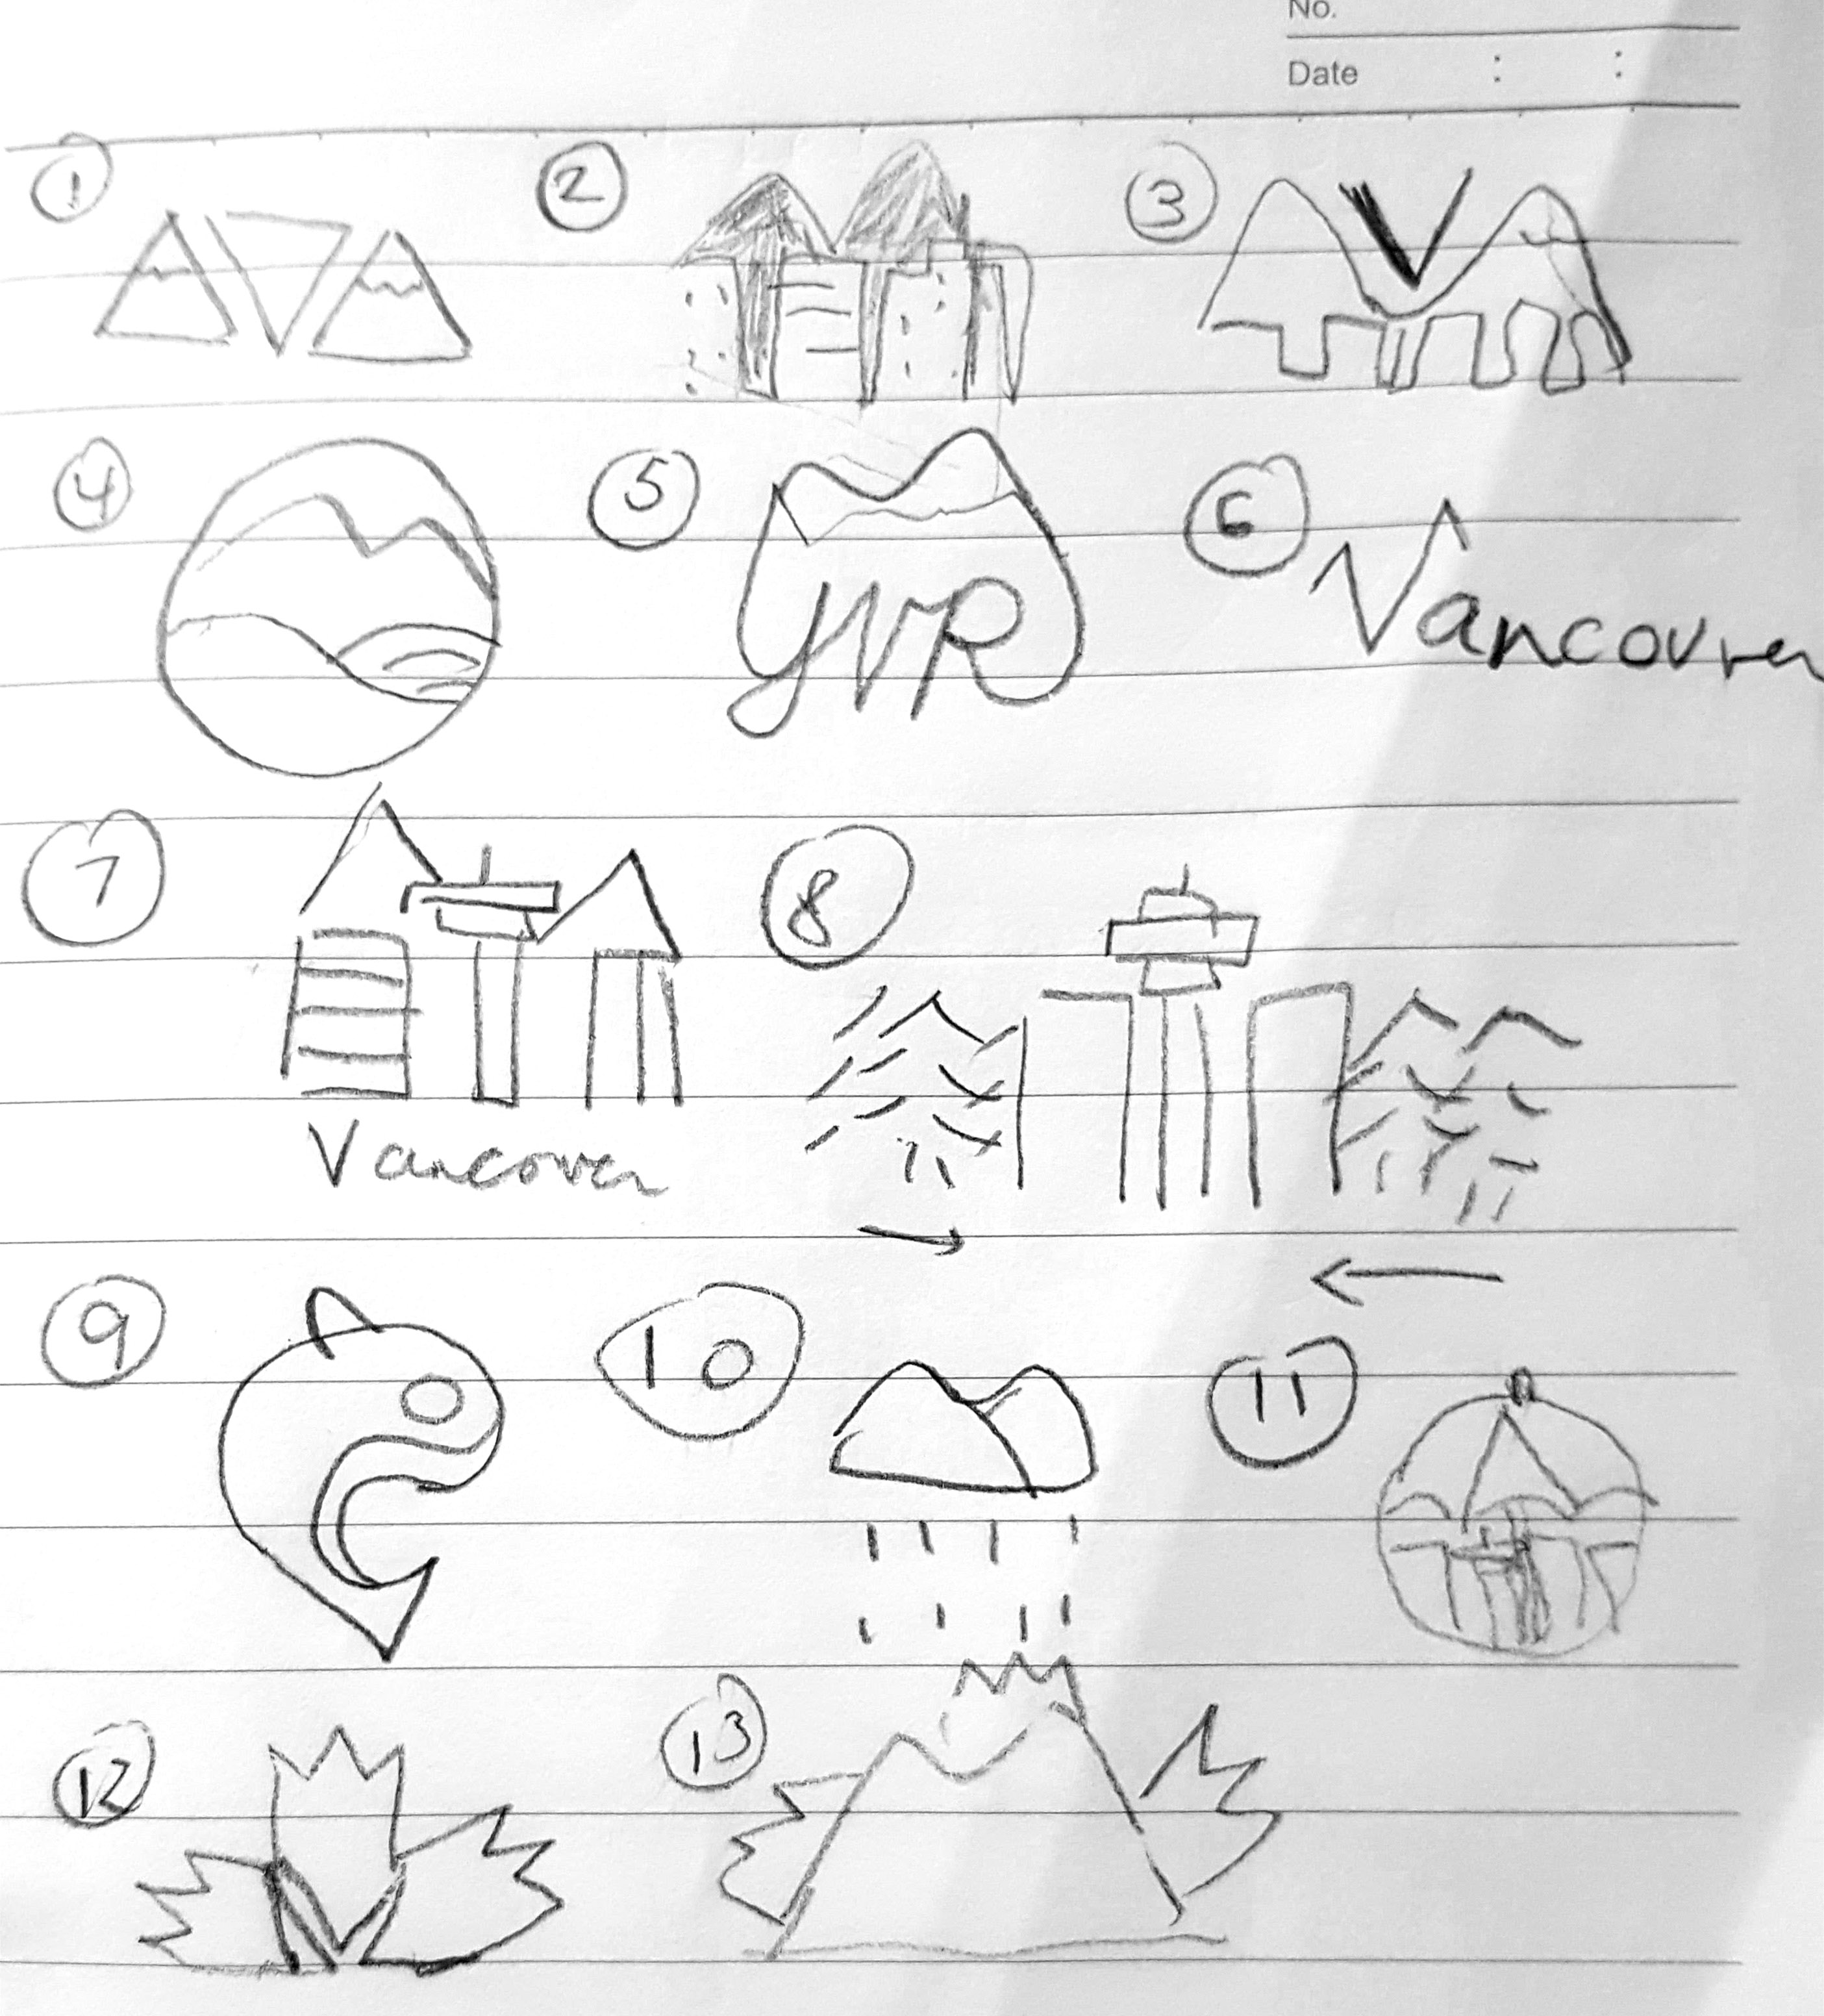 No.
Date : :
1 2 3
4 5 YVR 6 Vancouver
7 8
Vancouver
9 10 11
12 13